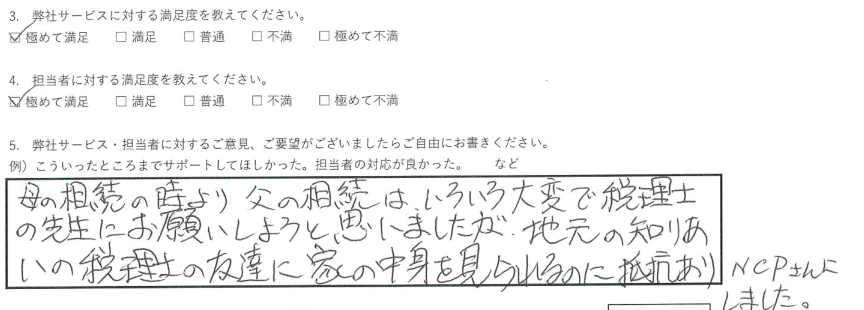 3. 弊社サービスに対する満足度を教えてください。
☑ 極めて満足 □ 満足 □ 普通 □ 不満 □ 極めて不満
4. 担当者に対する満足度を教えてください。
☑ 極めて満足 □ 満足 □ 普通 □ 不満 □ 極めて不満
5. 弊社サービス・担当者に対するご意見、ご要望がございましたらご自由にお書きください。
例）こういったところまでサポートしてほしかった。担当者の対応が良かった。 など
母の相続の時より 父の相続は、いろいろ大変で税理士
の先生にお願いしようと思いましたが、地元の知りあ
いの税理士の友達に家の中身を見られるのに抵抗あり NCPさんに
しました。